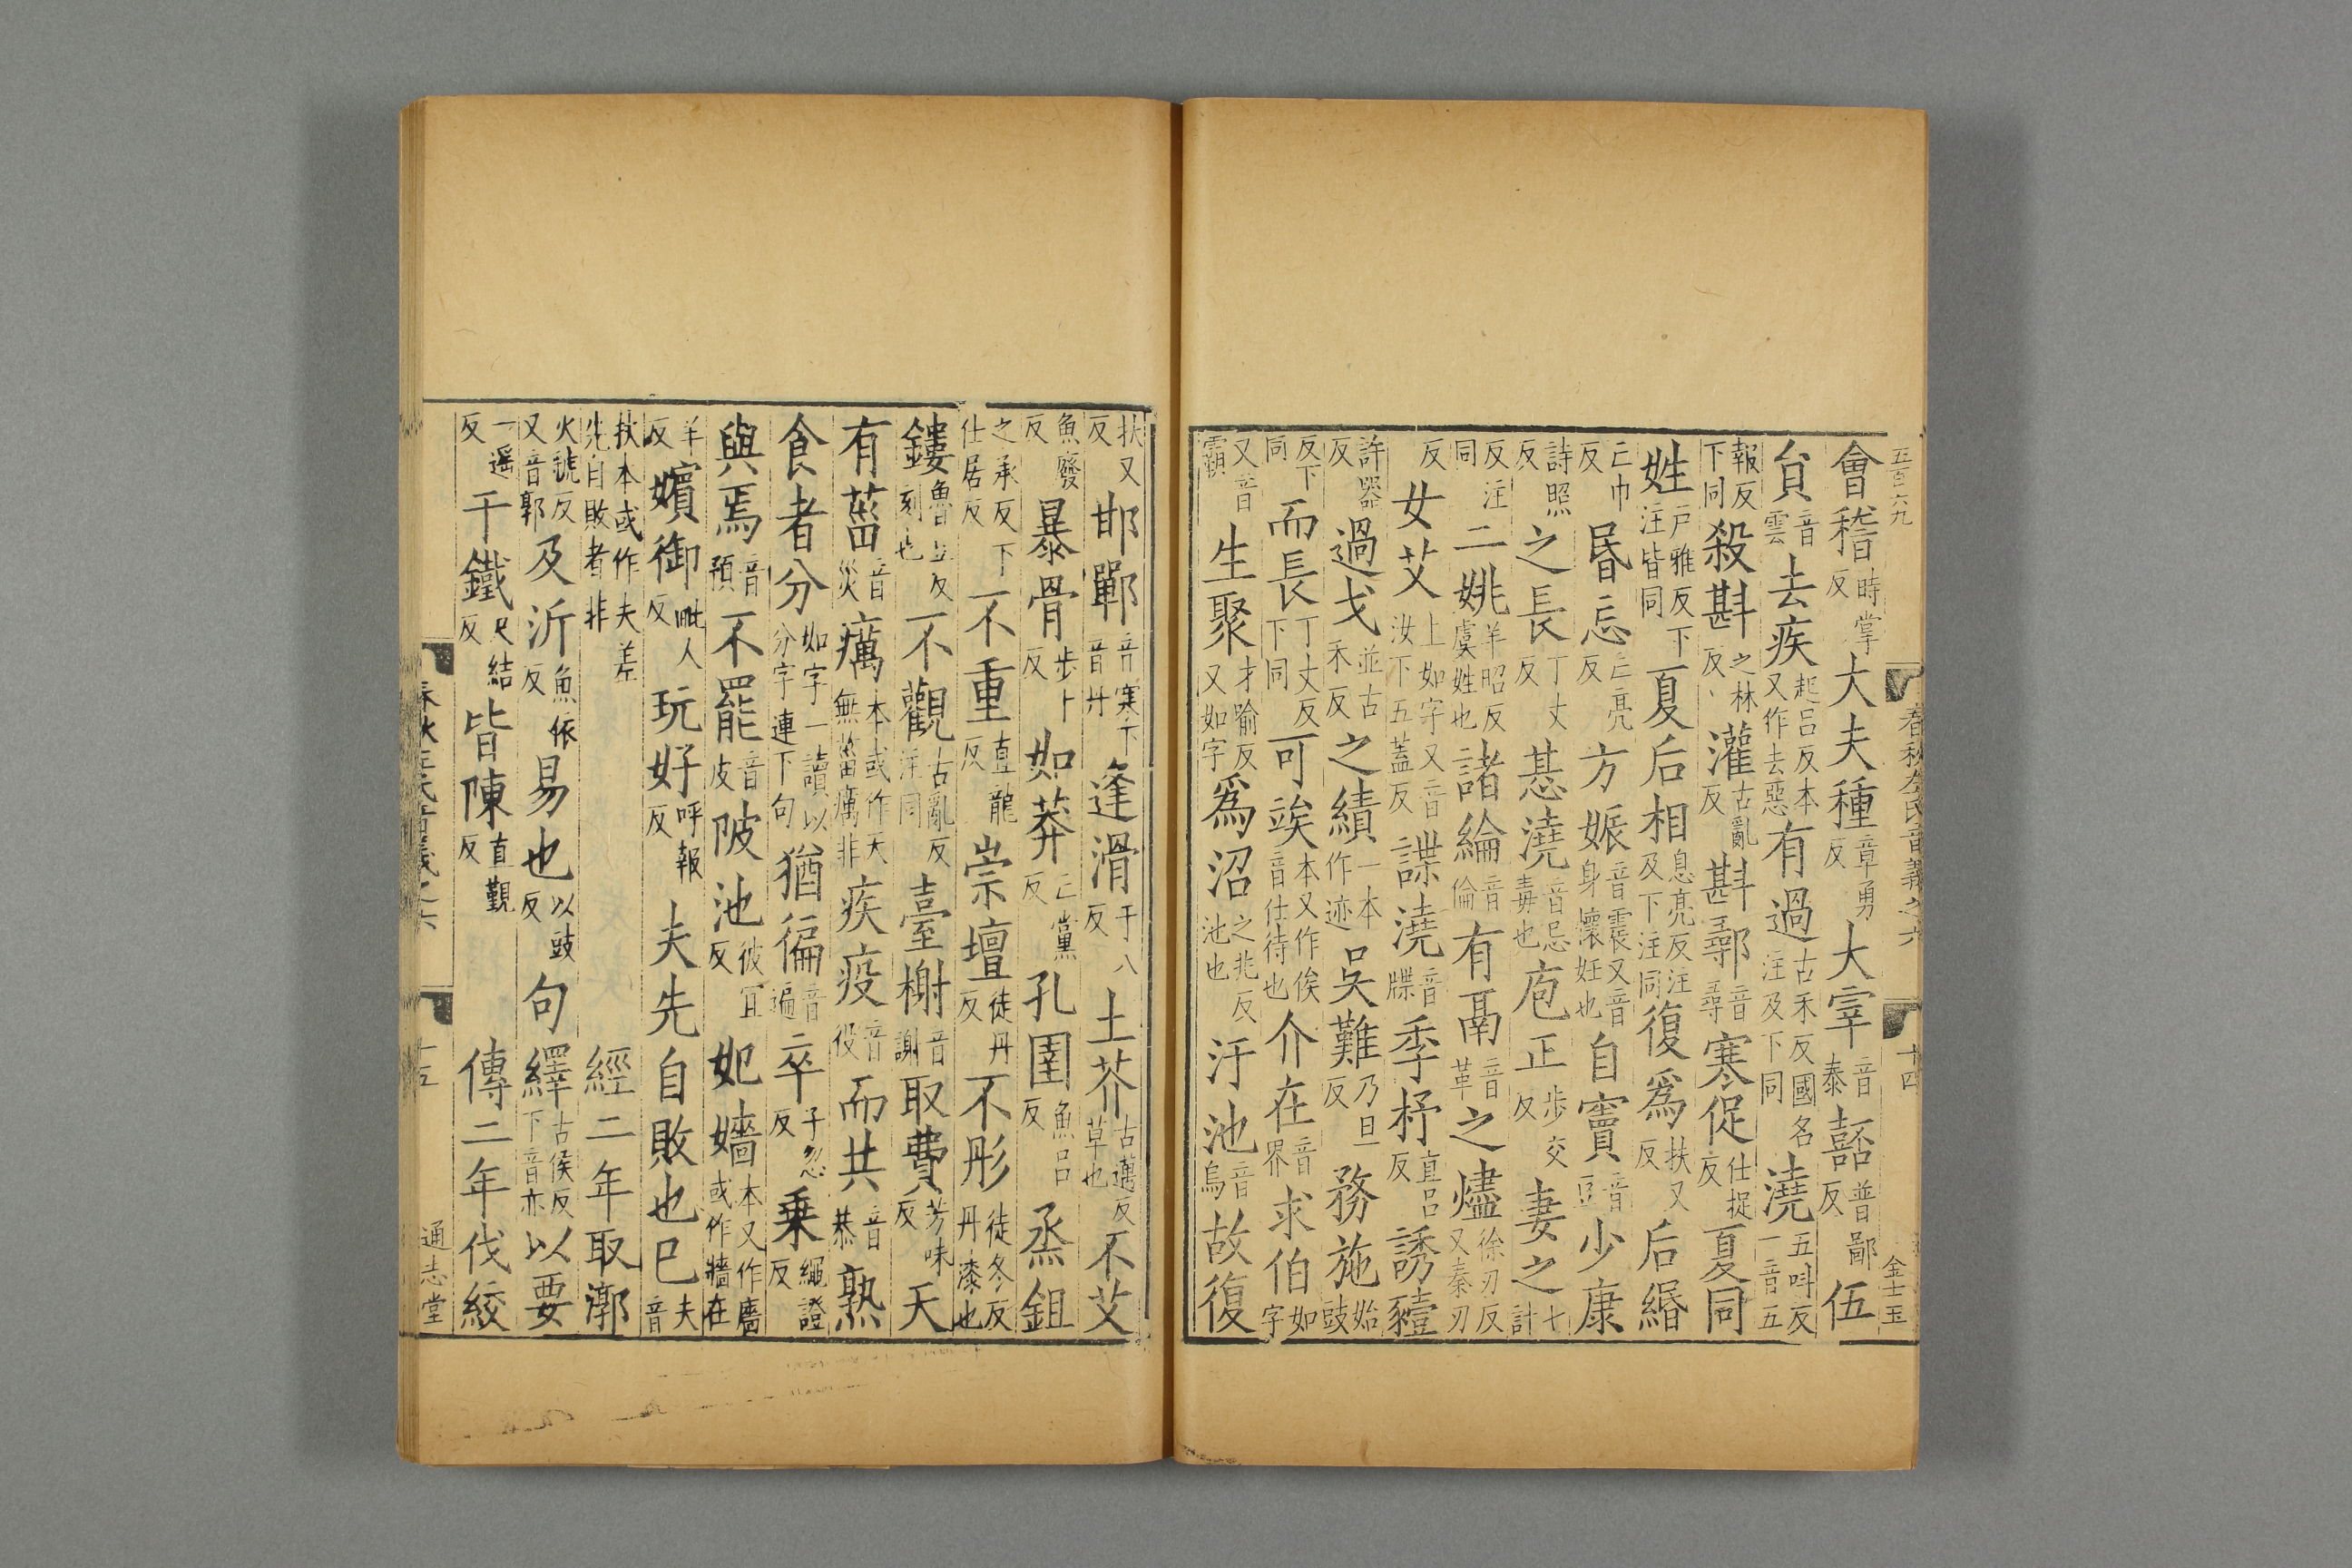 五百六九
春秋左氏音義之六 十四 金士玉
會稽時掌反大夫種章勇反大宰音泰嚭普鄙反伍
貟音雲去疾起吕反本又作去惡有過古禾反國名注及下同澆五呌反一音五
報反下同殺斟之林反灌古亂反斟鄩音尋寒促仕捉反夏同
姓户雅反下注皆同夏后相息亮反注及下注同復爲扶又反后緡
亡巾反㫯忘亡亮反方娠音震又音身懷妊也自竇音豆少康
詩照反之長丁丈反惎澆音忌毒也庖正步交反妻之七計
反注同二姚羊昭反虞姓也諸綸音倫有鬲音革之燼徐刃反又秦刃
反女艾上如字又音汝下五蓋反諜澆音牒季杼直吕反誘豷
許器反過戈並古禾反之績一本作迹吴難乃旦反務施始豉
反下同而長丁丈反下同可竢本又作俟音仕待也介在音界求伯如字
又音霸生聚才喻反又如字爲沼之兆反池也汙池音烏故復
扶又反邯鄲音寒下音丹逢滑于八反土芥古邁反草也不艾
魚廢反暴骨步卜反如莽亡黨反孔圉魚吕反烝鉏
之承反下仕居反不重直龍反崇壇徒丹反不彤徒冬反丹漆也
鏤魯豆反刻也不觀古亂反注同臺榭音謝取費芳味反天
有菑音災癘本或作天無菑癘非疾疫音役而共音恭熟
食者分如字一讀以分字連下句猶徧音遍卒子忽反乗繩證反
與焉音預不罷音皮陂池彼冝反妃嬙本又作廧或作牆在
羊反嬪御毗人反玩好呼報反夫先自敗也巳音夫
扶本或作夫差先自敗者非 經二年取漷
火虢反又音郭及沂魚依反易也以豉反句繹古侯反下音亦以要
一遥反于鐵尺結反皆陳直覲反 傳二年伐絞
春秋左氏音義之六 十五 通志堂